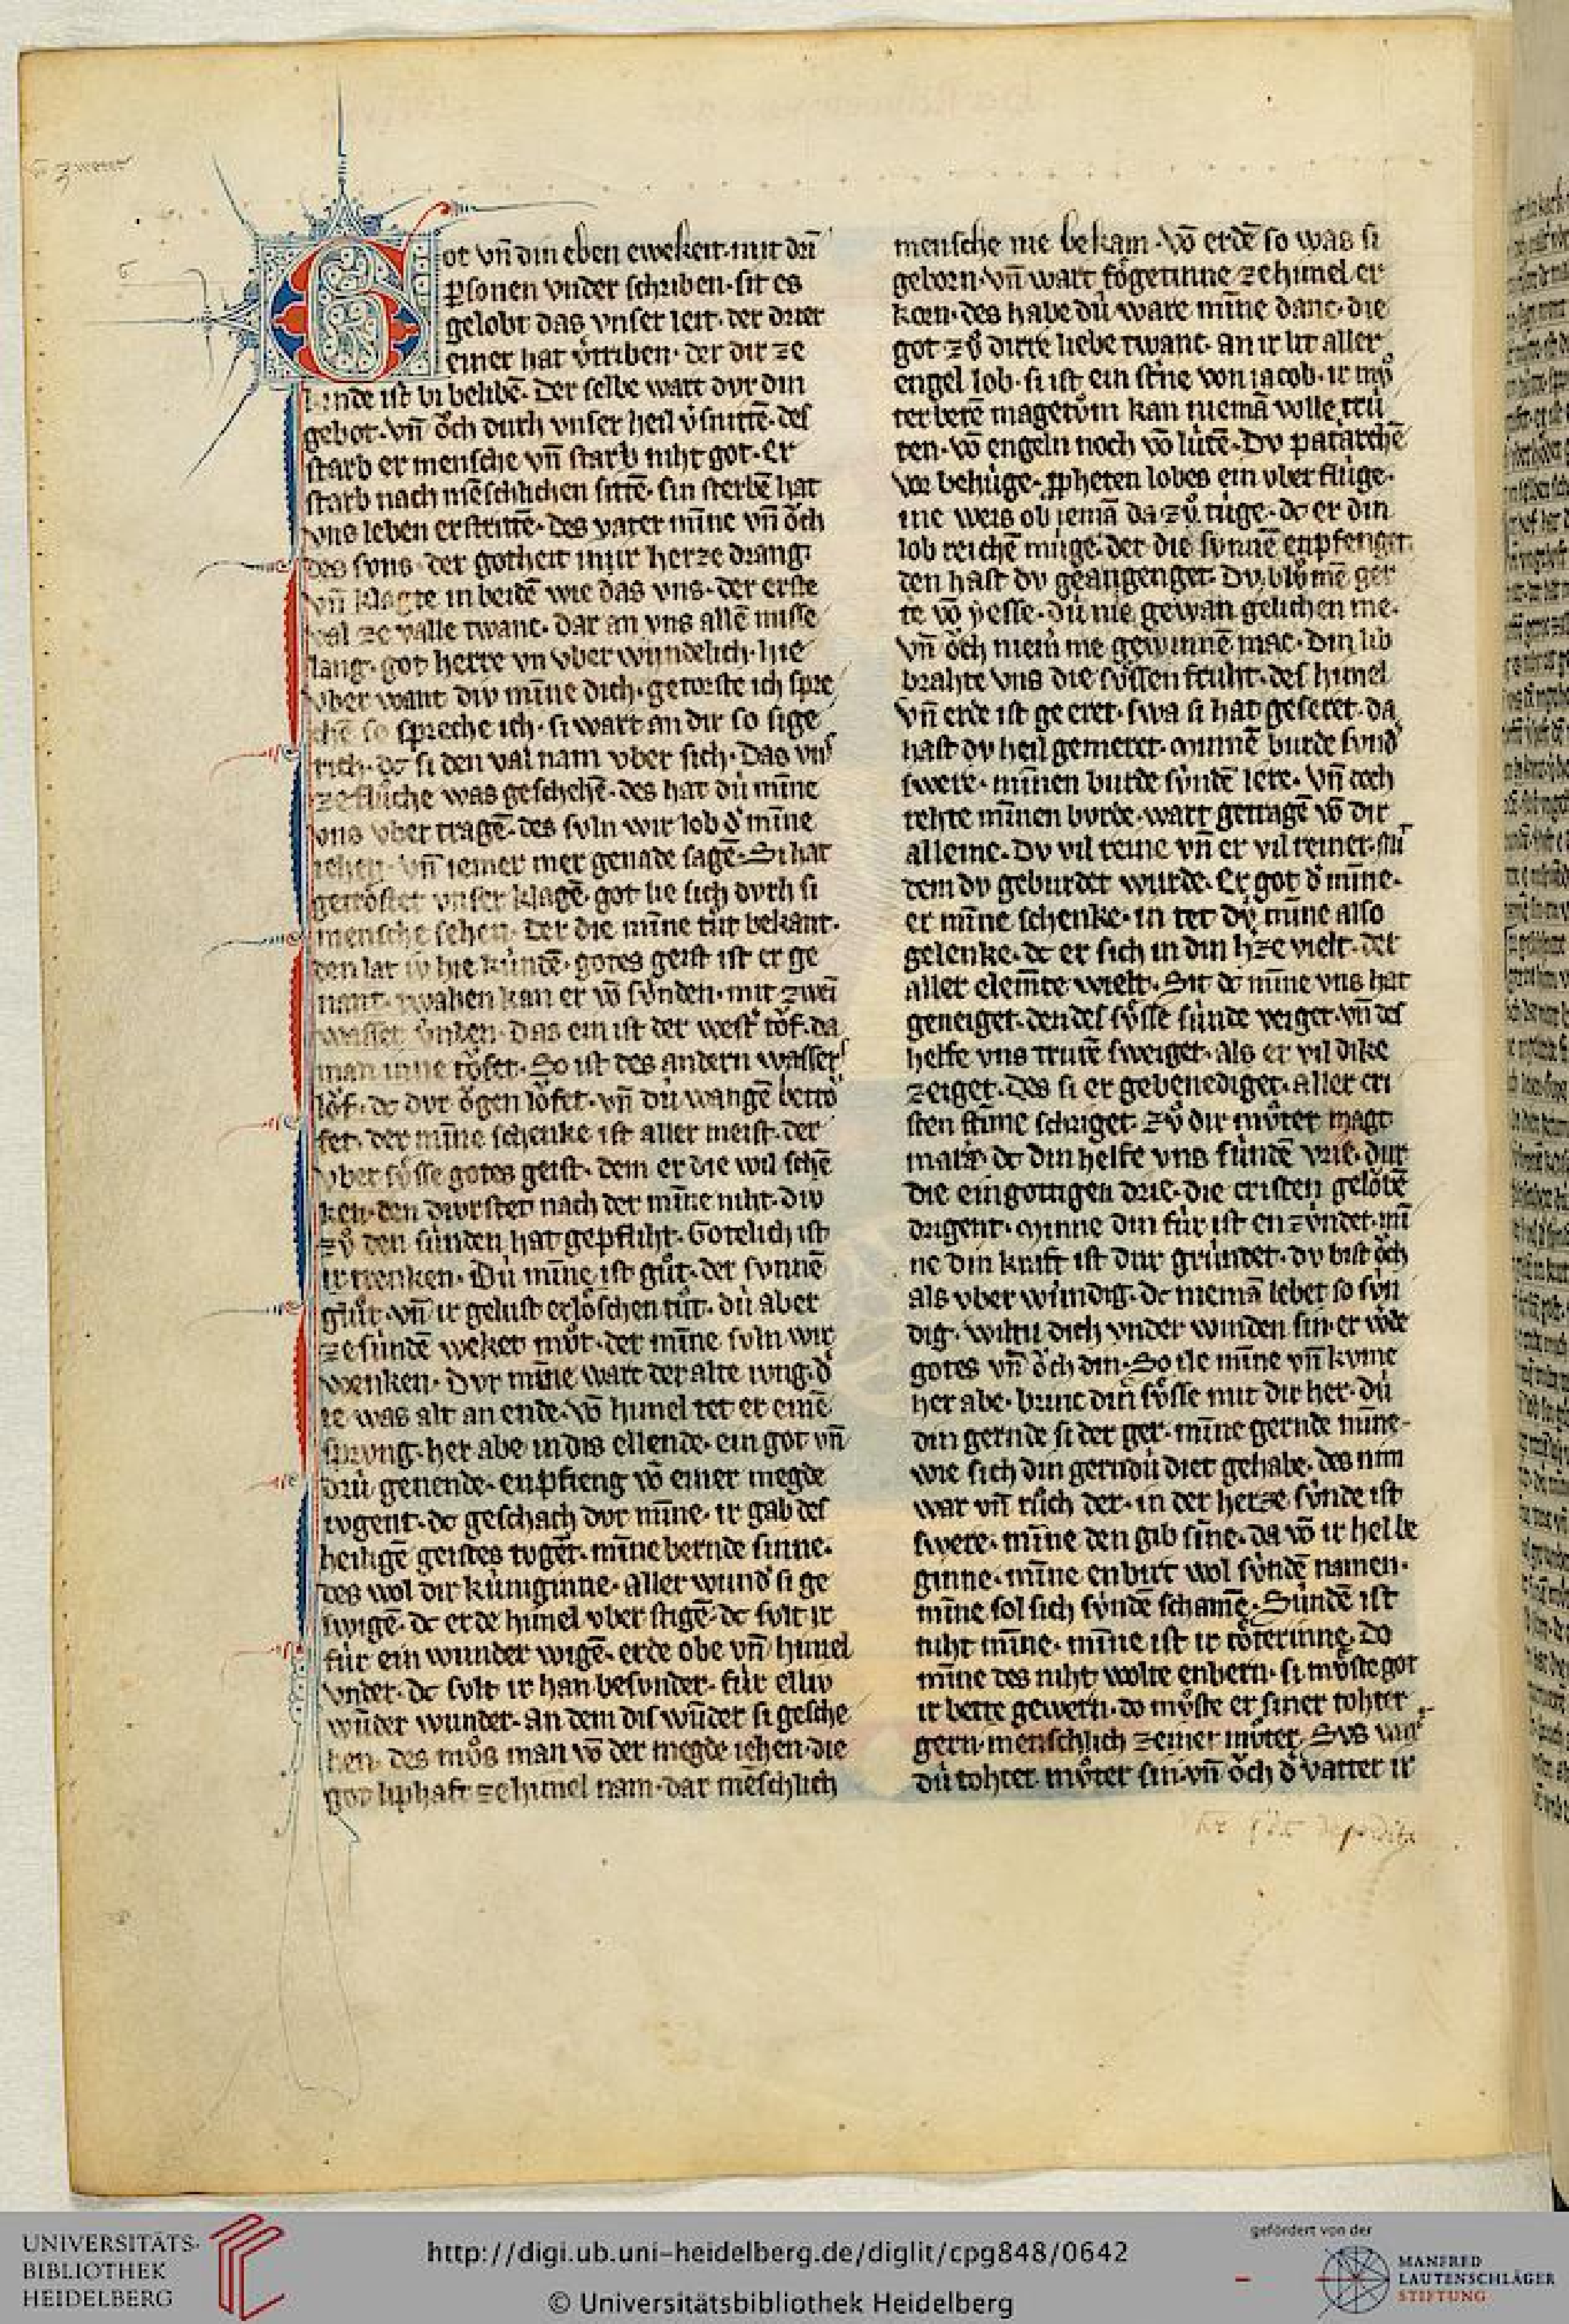 Got vñ din eben ewekeit mit drī
p̱sonen vnder schriben. sit es
gelobt das vnser leit. der drier
einer hat v̓triben. der dir ze
kinde ist bi belibē. Der selbe wart dvr din
gebot. vñ oͮch durh vnser heil v̓snittē. des
starb er mensche vñ starb niht got. Er
starb nach mēschlichen sittē. sin sterbē hat
vns leben erstrittē. des vater miñe vñ oͮch
des svns. der gotheit mur herze drang
vñ klagte in beidē wie das vns. der erste
val ze valle twanc. dar an vns allē misse
lang. got herre vn vber windelich. hie
vber want div miñe dich. getorste ich spre
chē so spreche ich. si wart an dir so sige
rich. dc si den val nam vber sich. Das vns
ze fluͦche was geschehē. des hat dú miñe
vns vber tragē. des svln wir lob d̓ miñe
iehen. vñ iemer mer genade sagē. Si hat
getroͤstet vnser klagē. got lie sich dvrh si
mensche sehen. Der die miñe tuͦt bekant.
den lat iv hie kúndē. gotes geist ist er ge
nant. twahen kan er vō svnden. mit zwei
wasser vnden. Das ein ist der west toͮf. da
man inne toͮfet. So ist des andern wasser
loͮf. dc dvr oͮgen loͮfet. vñ dú wangē betroͮ
fet. der miñe schenke ist aller meist. der
vber svͤsse gotes geist. dem er die wil schē
ken. den dvrstet nach der miñe niht. div
zvͦ den súnden hat gepfliht. Gotelich ist
ir trenken. Dú miñe ist guͦt. der svnnē
gluͦt. vñ ir gelust erloͤschen tuͦt. dú aber
ze súndē weket muͦt. der miñe svln wir
wenken. Dvr miñe wart der alte ivng. d̓
ie was alt an ende. vō himel tet er einē
sprvng. her abe in dis ellende. ein got vñ
drú genende. enpfieng vō einer megde
ivgent. dc geschach dvr miñe. ir gab des
heiligē geistes tvgēt. miñe bernde sinne.
des wol dir kúniginne. aller wund̓ si ge
swigē. dc erde himel vber stigē. dc svlt ir
fúr ein wunder wigē. erde obe vñ himel
vnder. dc svlt ir han besvnder. fúr elliv
wūder wunder. an dem dis wūder si gesche
hen. des muͦs man vō der megde iehen. die
got liphaft ze himel nam. dar mēschlich
mensche nie bekam. vō erdē so was si
geborn. vñ wart foͮgetinne ze himel er
korn. des habe dú ware miñe danc. die
got zvͦ dirre liebe twanc. an ir lit aller
engel lob. si ist ein stñe von iacob. ir muͦ
ter berē magetuͦm kan niemā volle trú
ten. vō engeln noch vō lútē. Dv patarchē
vor behúge. p̱pheten lobes ein vber flúge.
ine weis ob iemā da zvͦ túge. dc er din
lob reichē múge. der die svnnē enpfenget.
den hast dv geangenget. Dv blvͦmē ger
te vō yesse. dú nie gewan gelichen me.
vñ oͮch niem̄ me gewinnē mac. din lib
brahte vns die svͤssen fruht. des himel
vñ erde ist ge eret. swa si hat geseret. da
hast dv heil gemeret. minnē burde svnd̓
swere. miñen burde svndē lere. vñ doch
rehte miñen bvrde. wart getragē vō dir
alleine. Dv vil reine vñ er vil reiner. mit
dem dv geburdet wurde. Er got d̓ miñe.
er miñe schenke. in tet dv̓ miñe also
gelenke. dc er sich in din h̓ze vielt. der
aller elemēte wielt. Sit dc miñe vns hat
geneiget. den des svͤsse súnde veiget. vñ des
helfe vns trurē sweiget. als er vil dike
zeiget. Des si er gebenediget. aller cri
sten stīme schriget. zvͦ dir muͦter magt
marie dc din helfe vns súndē vrie. dur
die eingottigen drie. die cristen geloͮbē
drigent. Minne din fúr ist enzvndet. mi
ne din kraft ist dur gründet. dv bist oͮch
als vber windig. dc niemā lebet so svn
dig. wiltu dich vnder winden sin. er w̓de
gotes vñ oͮch din. So ile miñe vñ kvme
her abe. brinc din svͤsse mit dir her. dú
din gernde si der ger. miñe gernde miñe.
wie sich din gerndú diet gehabe. des nim
war vñ rúch der. in der herze svnde ist
swere. miñe den gib siñe. da vō ir hel be
ginne. miñe enbirt wol svndē namen.
miñe sol sich svndē schamē. Súndē ist
niht miñe. miñe ist ir toͤterinne. Do
miñe des niht wolte enbern. si mvͤste got
ir bette gewern. do mvͤste er siner tohter
gern. menschlich ze einer muͦter. Svs wart
dú tohter muͦter sin. vñ oͮch d̓ vatter ir
UNIVERSITÄTS-
BIBLIOTHEK
HEIDELBERG
http://digi.ub.uni-heidelberg.de/diglit/cpg848/0642
© Universitätsbibliothek Heidelberg
gefördert von der
MANFRED
LAUTENSCHLÄGER
STIFTUNG